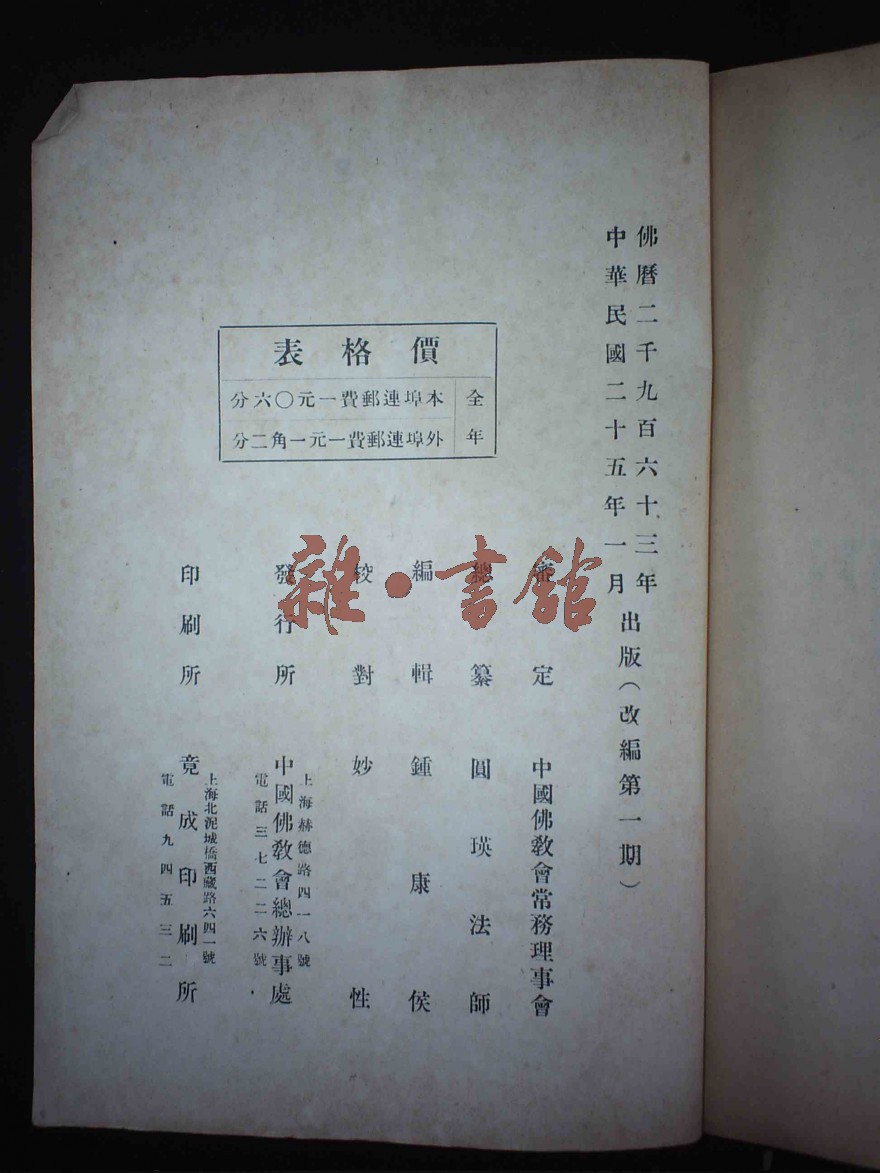 佛曆二千九百六十三年
中華民國二十五年一月
出版（改編第一期）
審定 中國佛教會常務理事會
總纂 圓瑛法師
編輯 鍾康侯
校對 妙性
發行所 中國佛教會總辦事處
上海赫德路四一八號
電話三七二二六號
印刷所 竟成印刷所
上海北泥城橋西藏路六四一號
電話九四五三二
價格表
全年
本埠連郵費一元〇六分
外埠連郵費一元一角二分
雜·書館